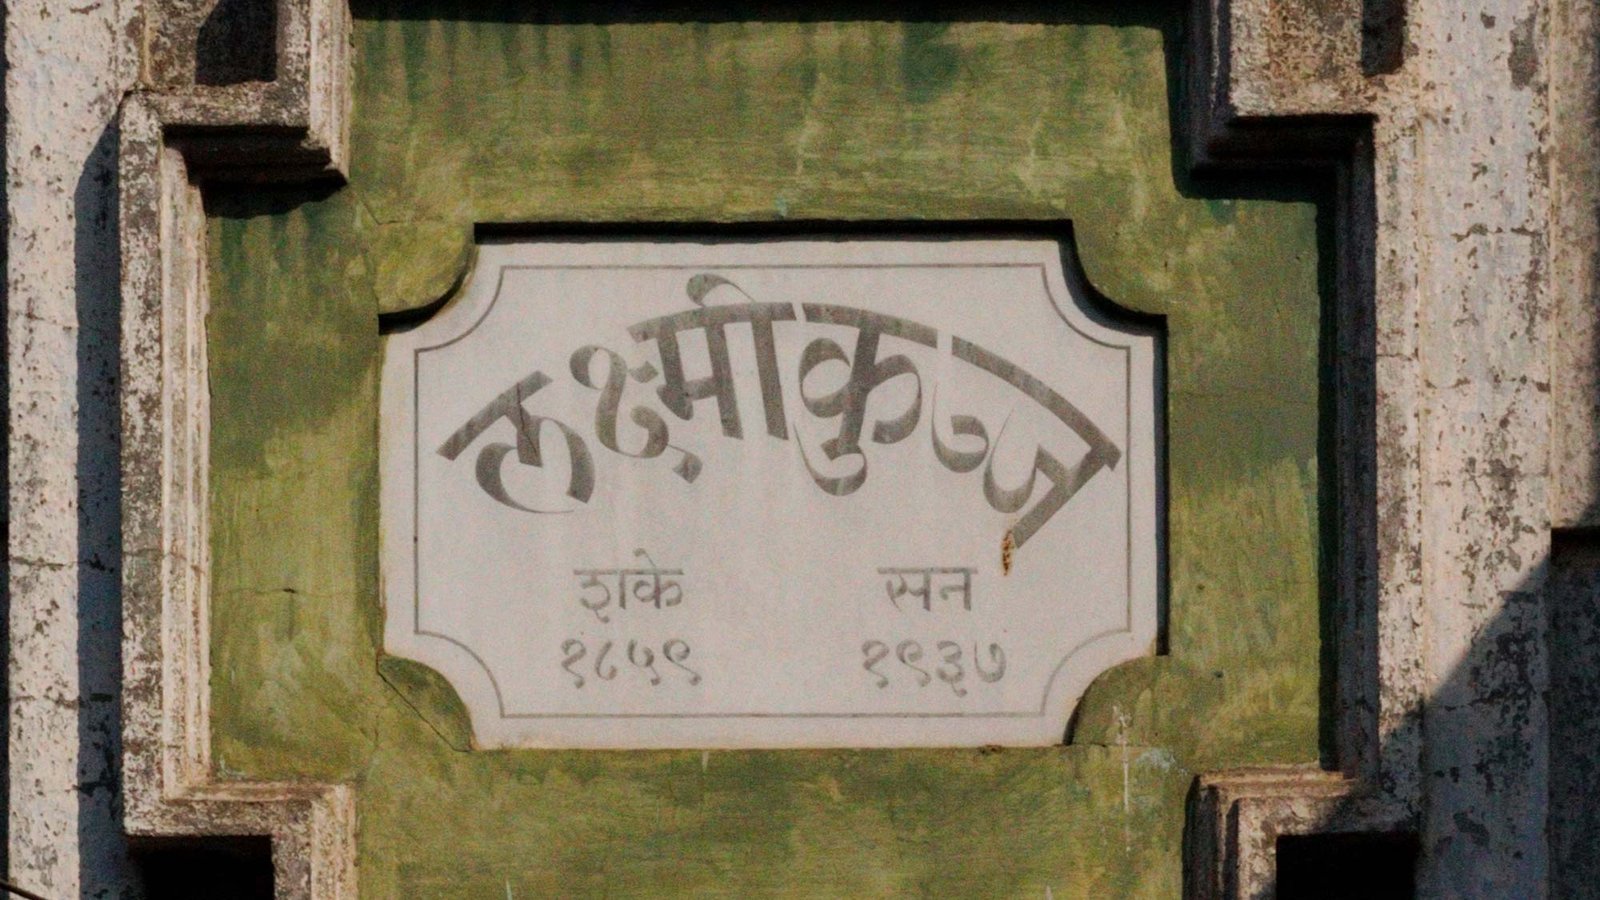 लक्ष्मीकुञ्ज
शके सन
१८५९ १९३७